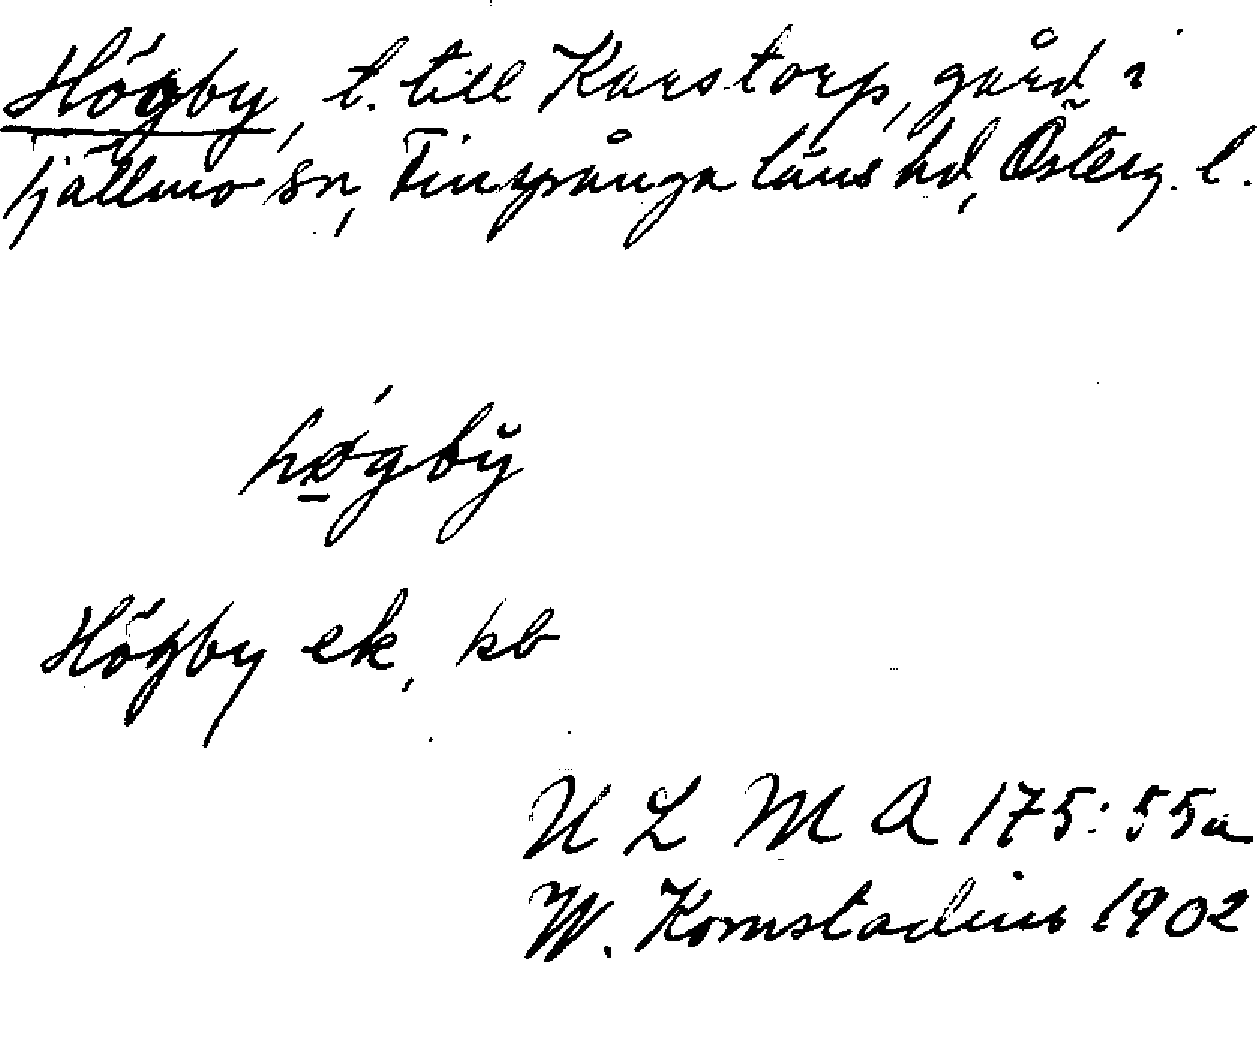 Högby, t. till Karstorp, gård i
Tjällmo sn, Finspånga läns hd, Österg. l.
hø̲´gby̆
Högby ek, kb
U L M A 175:55a
W. Kornstadius 1902